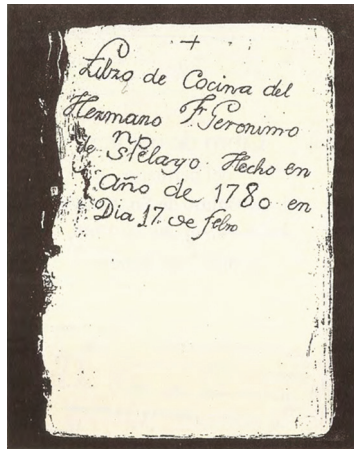 +
Libro de Cocina del
Hermano F. Geronimo
de Sn Pelayo. Hecho en
año de 1780 en
Dia 17 de febro